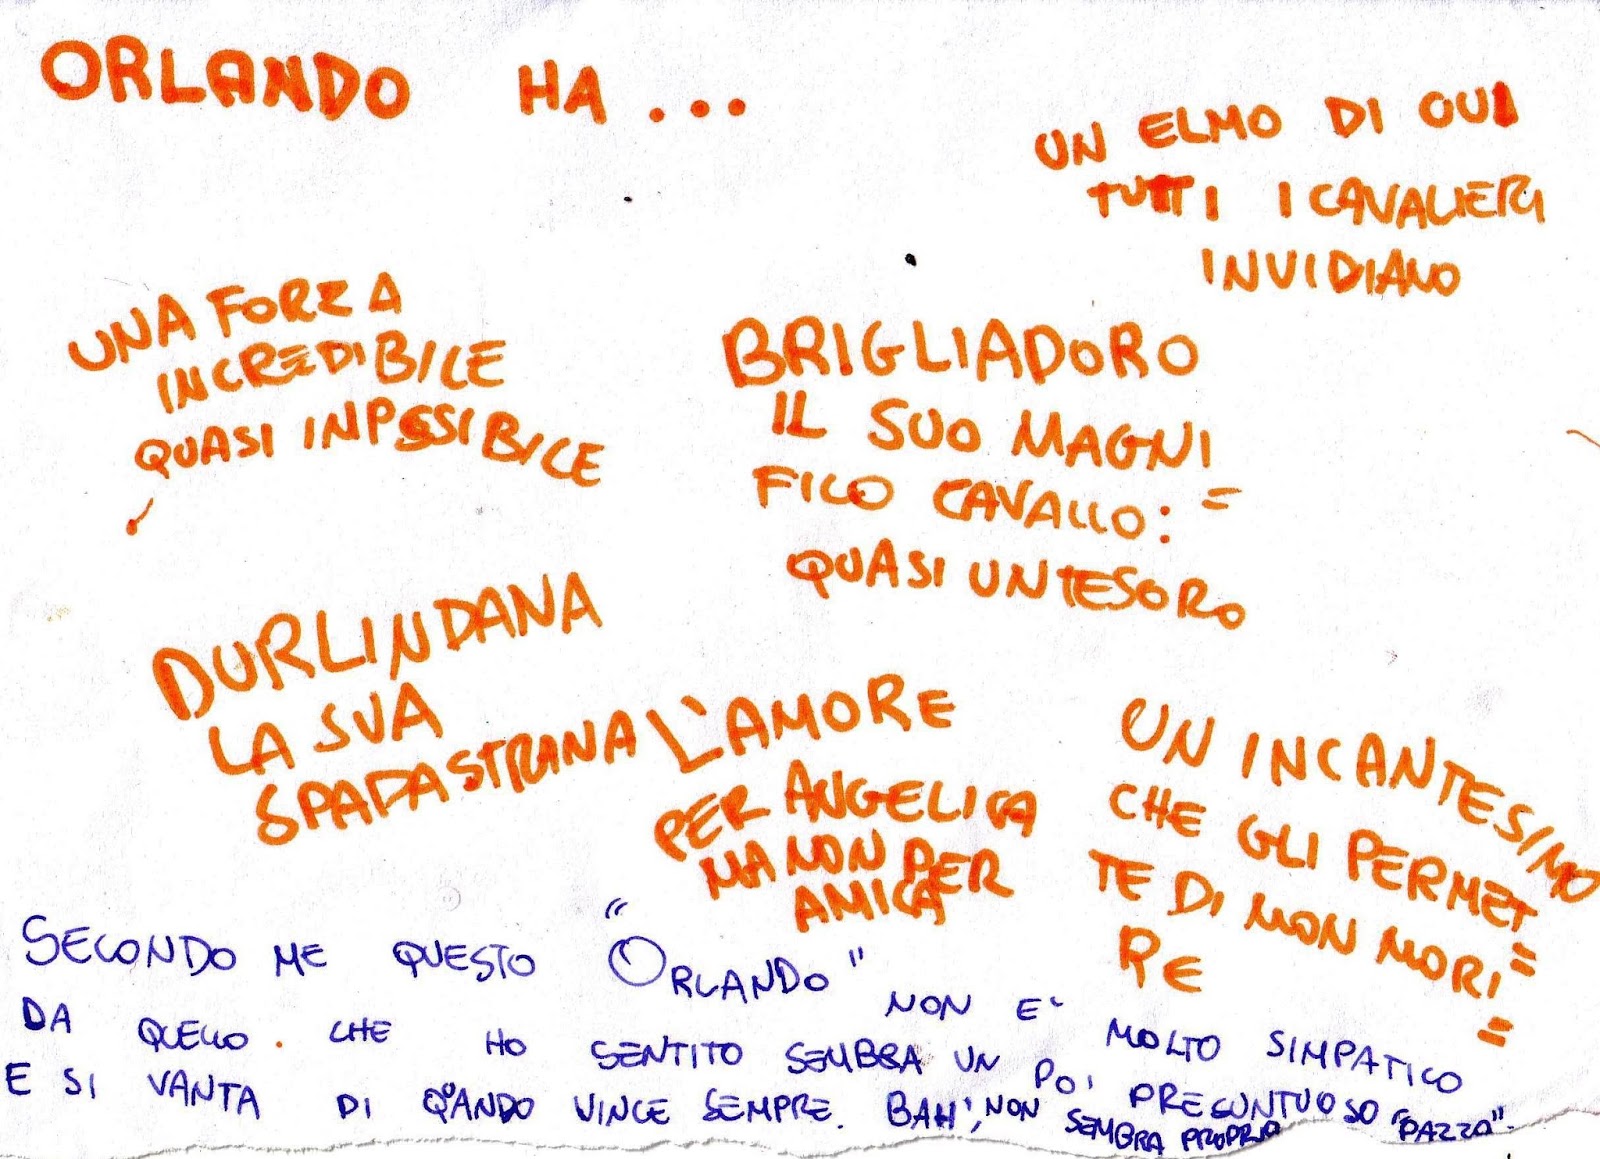 ORLANDO HA...
UN ELMO DI CUI
TUTTI I CAVALIERI
INVIDIANO
UNA FORZA
INCREDIBILE
QUASI INPSSIBILE
BRIGLIADORO
IL SUO MAGNI
FICO CAVALLO: =
QUASI UN TESORO
DURLINDANA
LA SUA
SPADA STRANA
L'AMORE
PER ANGELICA
MA NON PER
AMICA
UN INCANTESIMO
CHE GLI PERMET=
TE DI NON MORI=
RE
SECONDO ME QUESTO "ORLANDO" NON E' MOLTO SIMPATICO
DA QUELLO CHE HO SENTITO SEMBRA UN PO' PRESUNTUOSO
E SI VANTA DI QUANDO VINCE SEMPRE. BAH, NON SEMBRA PROPRIO "PAZZO".